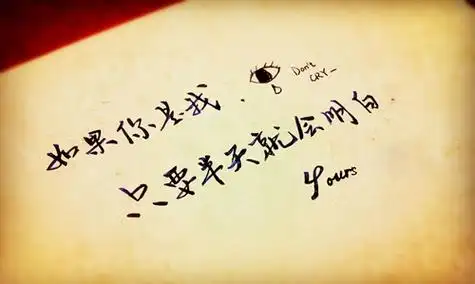 如果你是我.
Don't
CRY_
只要半天就会明白.
Yours